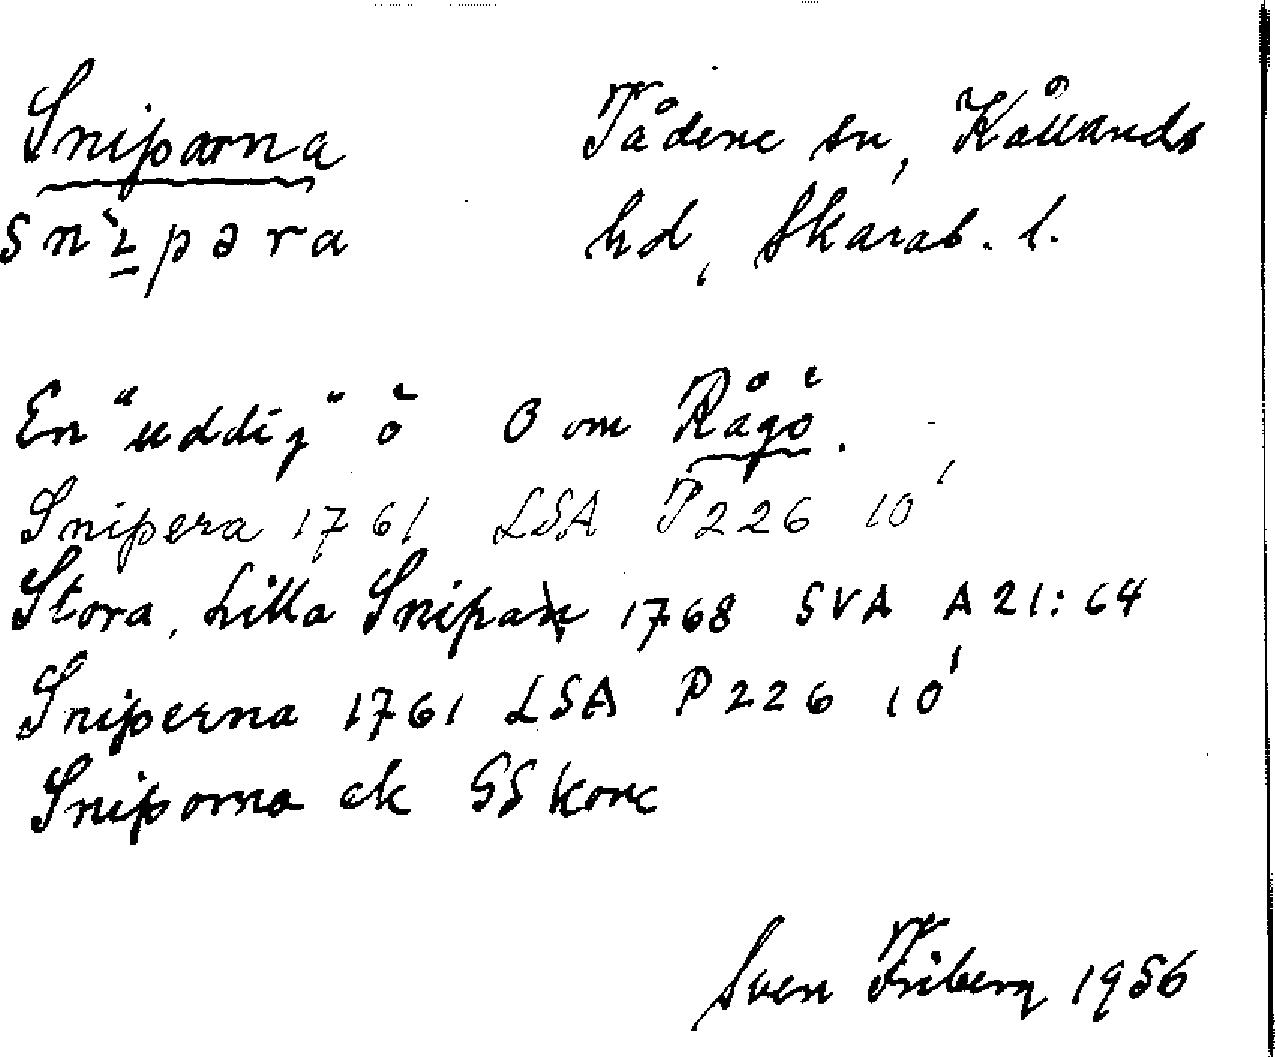 Sniparna Tådene sn, Kållands
snìpəra hd, Skarab. l.
En "uddig" ö O om Rågö.
Snipera 1761 LSA P226 10'
Stora, Lilla Snipan 1768 SVA A21:64
Sniperna 1761 LSA P226 10'
Sniporna ek GS konc
Sven Friberg 1956